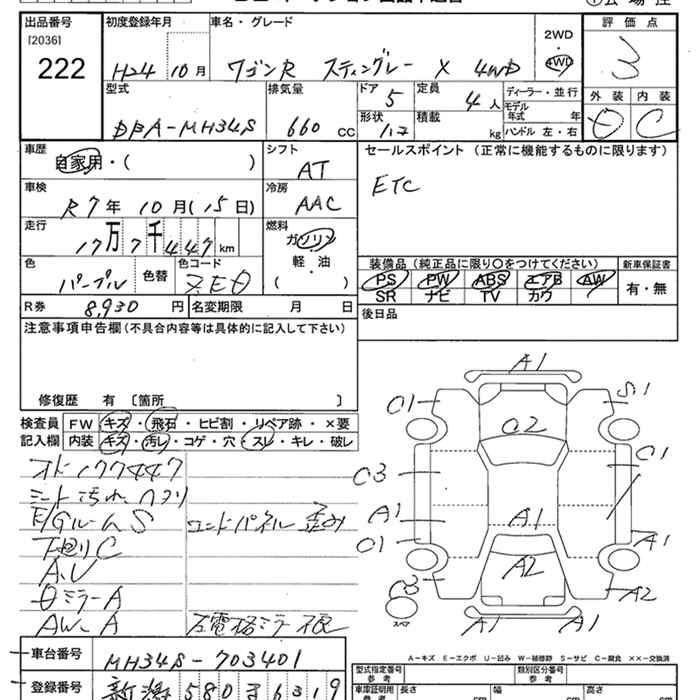 出品番号 初度登録年月 車名・グレード 評価点
[2036]
222
H24 10月 ワゴンR スティングレー X 4WD 2WD 4WD 3
型式 排気量 ドア 定員 ディーラー・並行 外装 内装
DBA-MH34S 660 CC 5 4人 モデル年式 年
形状 積載 kg ハンドル 左・右 C
車歴 シフト セールスポイント（正常に機能するものに限ります）
自家用・（ ） AT ETC
車検 冷房
R7年 10月（15日） AAC
走行 燃料
17万7千447km ガソリン
軽・油
（ ）
色 色替 色コード 装備品（純正品に限り○をつけてください） 新車保証書
パープル PS PW ABS エアB AW 有・無
SR ナビ TV カワ
R券 8,930円 名変期限 月 日 後日品
注意事項申告欄（不具合内容等は具体的に記入して下さい）
修復歴 有 〔箇所 〕
検査員 FW キズ・飛石・ヒビ割・リペア跡・×要
記入欄 内装 キズ・汚レ・コゲ・穴・スレ・キレ・破レ
オド177447
シート汚れ
E/GルームS コードパネル歪み
下廻りC
A.V
θミラーA
AW-A 左電格ミラー
A1
C1 S1
C2
C3 C1
A1 A1
C1 A1
A2
C3 A2
スペア
A1 A1
A-キズ E-エクボ U-凹み W-補修跡 S-サビ C-腐食 ××-交換済
車台番号 MH34S-703401
型式指定番号 参考 類別区分番号 参考
登録番号 580 6319
車庫証明用 参考 長さ cm 幅 cm 高さ cm